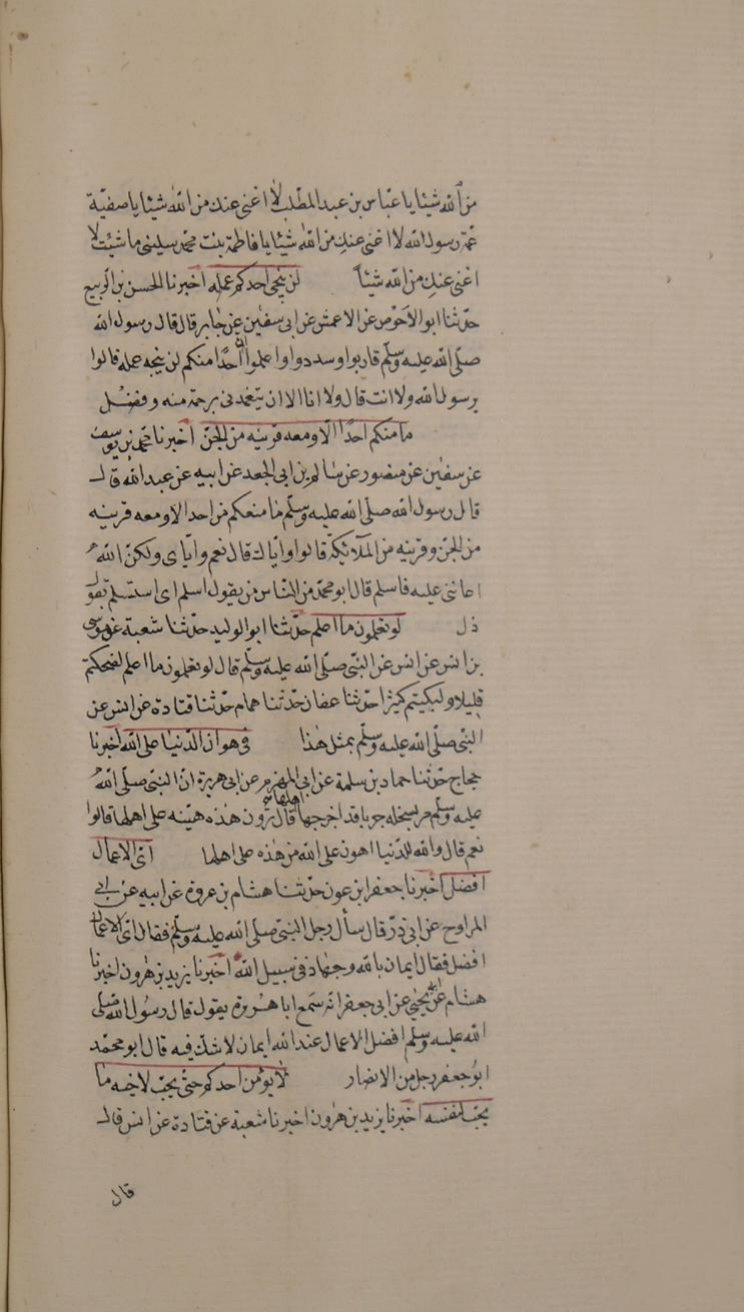 من الله شيئا يا عباس بن عبد المطلب لا اغنى عنك من الله شيئا يا صفية
عمة رسول الله لا اغنى عنكِ من الله شيئا يا فاطمة بنت محمد سلينى ما شئت لا
اغنى عنكِ من الله شيئاً لن ينجى احدكم عمله اخبرنا الحسن بن الربيع
حدّثنا ابو الاحوص عن الاعمش عن ابى سفين عن جابر قال قال رسول الله
صلّى الله عليه وسلّم قاربوا وسددوا واعلموا ان احدًا منكم لن ينجه عمله قالوا
يرسول الله ولا انت قال ولا انا الا ان يتغمدنى برحمة منه وفضل
ما منكم احدًا الّا ومعه قرينه من الجنّ اخبرنا محمد بن يوسف
عن سفين عن منصور عن سالم بن ابى الجعد عن ابيه عن عبد الله قال
قال رسول الله صلّى الله عليه وسلّم ما منعكم من احد الا ومعه قرينه
من الجن وقرينه من الملآئكة قالوا واياك قال نعم واياى ولكن الله
اعاننى عليه فاسلم قال ابو محمّد من النّاس من يقول اسلم اى استسلم يقول
ذل لو تعلمون ما اعلم حدّثنا ابو الوليد حدّثنا شعبة عن موسى
بن انس عن انس عن النبّى صلّى الله عليه وسلّم قال لو تعلمون ما اعلم لضحكتم
قليلا ولبكيتم كثيرًا حدّثنا عفان حدّثنا همام حدّثنا قتادة عن انس عن
النبّى صلّى الله عليه وسلّم بمثل هٰذا فى هوان الدّنيا على الله اخبرنا
حجاج حدّثنا حماد بن سلمة عن ابى المهزم عن ابى هريرة انّ النبّى صلّى الله
عليه وسلّم مر بسخلة جربا قد اخرجها اهلها قال ترون هٰذه هيّنه على اهلها قالوا
نعم قال والله للدّنيا اهون على الله من هٰذه على اهلها اىّ الاعمال
افضل اخبرنا جعفر ابن عون حدّثنا هشام بن عروة عن ابيه عن ابى
المراوح عن ابى ذرّ قال سأل رجل النبّى صلّى الله عليه وسلّم فقال اىّ الاعمال
افضل فقال ايمان بالله وجهاد فى سبيل الله اخبرنا يزيد بن هٰرون اخبرنا
هشام عن يحيى عن ابى جعفر انّه سمع ابا هريرة يقول قال رسول الله صلّى
الله عليه وسلّم افضل الاعمال عند الله ايمان لا شك فيه قال ابو محمّد
ابو جعفر رجل من الانصار لا يؤمن احدكم حتى يحبّ لاخيه ما
يحبّ لنفسه اخبرنا يزيد بن هٰرون اخبرنا شعبة عن قتادة عن انس قال
قال